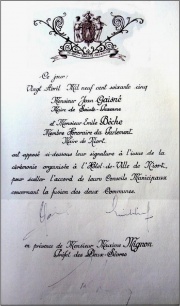 Ce jour
Vingt Avril Mil neuf cent soixante cinq
Monsieur Jean Gaisné
Maire de Sainte-Pezenne
et Monsieur Emile Bèche
Membre Honoraire du Parlement
Maire de Niort
ont apposé ci-dessous leur signature à l'issue de la
cérémonie organisée à l'Hôtel-de-Ville de Niort,
pour sceller l'accord de leurs Conseils Municipaux
concernant la fusion des deux Communes.
en présence de Monsieur Maxime Mignon
Préfet des Deux-Sèvres